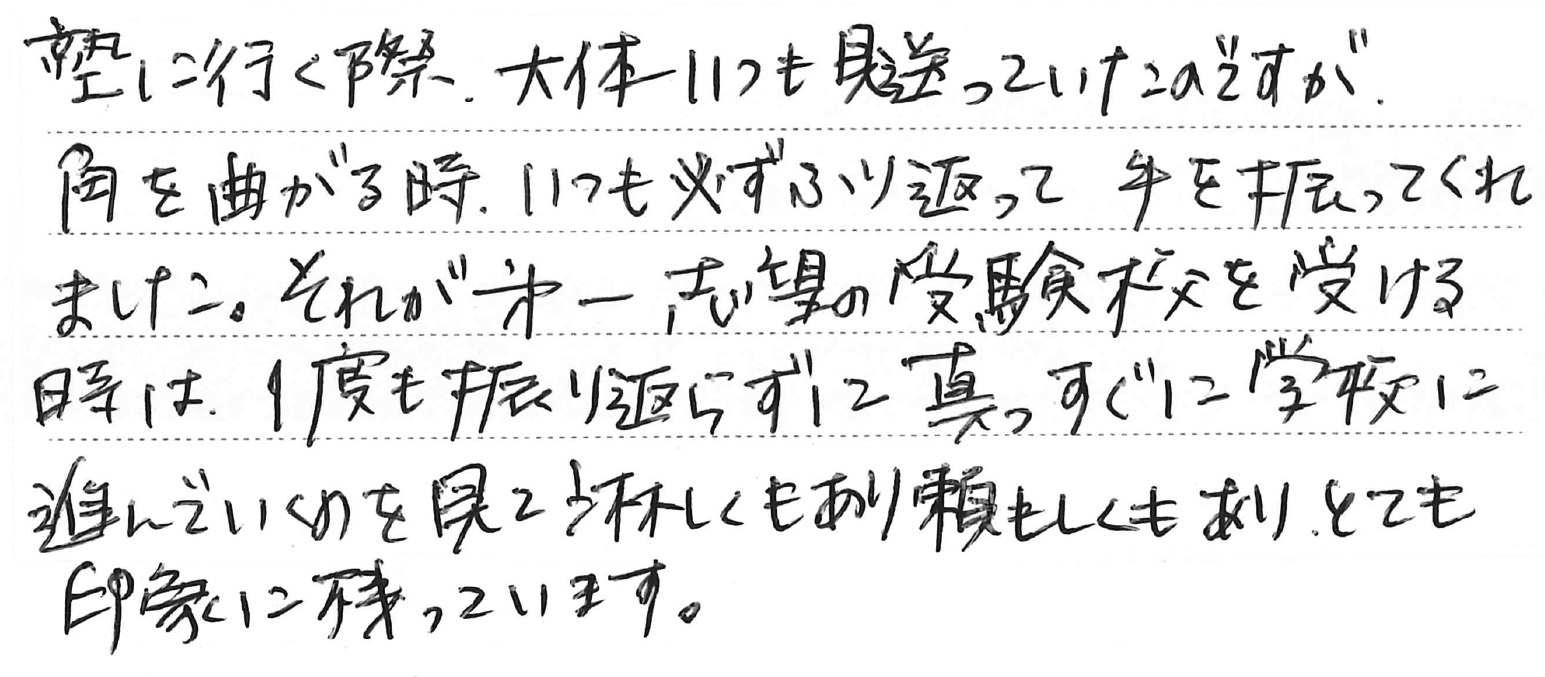 塾に行く際、大体いつも見送っていたのですが、
角を曲がる時、いつも必ずふり返って 手を振ってくれ
ました。それが第一志望の受験校を受ける
時は、1度も振り返らずに真っすぐに学校に
進んでいくのを見て淋しくもあり頼もしくもあり、とても
印象に残っています。